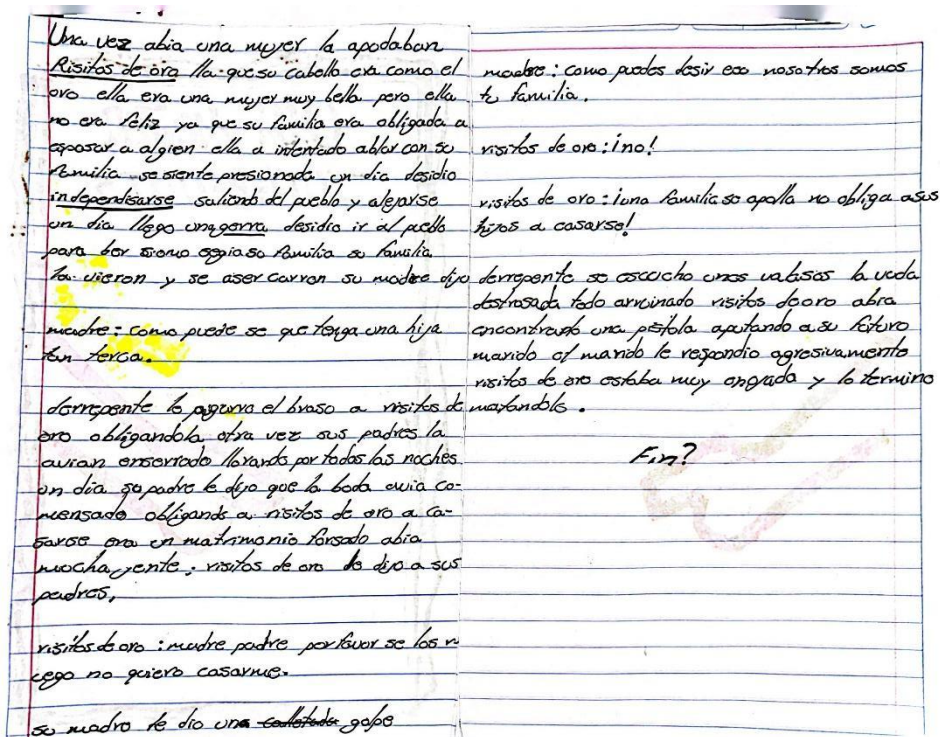 Una vez abia una mujer la apodaban
Risitos de oro lla que su cabello era como el
oro ella era una mujer muy bella pero ella
no era feliz ya que su familia era obligada a
esposar a algien ella a intentado ablar con su
familia se siente presionada un dia desidio
independisarse saliendo del pueblo y alejarse
un dia llego una gorra desidio ir al pueblo
para ber si su familia su familia
la vieron y se aser carron su madre dijo
madre: como puede se que tenga una hija
tan terca.
derrepente le agarra el braso a risitos de
oro obligandola otra vez sus padres la
avian enserrado llorando por todas las noches
un dia su padre le dijo que la boda avia co-
mensado obligando a risitos de oro a ca-
sarse era un matrimonio forsado abia
mucha jente, risitos de oro le dijo a sus
padres,
risitos de oro: madre padre por favor se los r
uego no quiero casarme.
su madre le dio una golpe
madre: como puedes desir eso nosotros somos
tu familia.
risitos de oro: ¡no!
risitos de oro: ¡una familia se apolla no obliga a sus
hijos a casarse!
derrepente se escucho unos valasos la voda
destrosada todo arruinado risitos de oro abia
encontrando una pistola aputando a su futuro
marido el marido le respondio agresivamente
risitos de oro estaba muy enojada y lo termino
matandolo.
Fin?